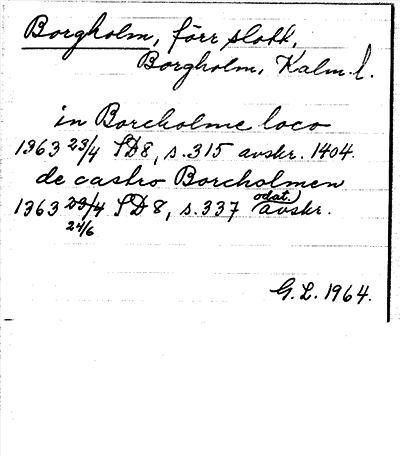 Borgholm, förr slott,
Borgholm, Kalm. l.
in Borcholme loco
1363 23/4 SD8, s.315 avskr. 1404.
de castro Borcholmen
1363 23/4 SD8, s.337 odat. avskr.
24/6
G.L. 1964.